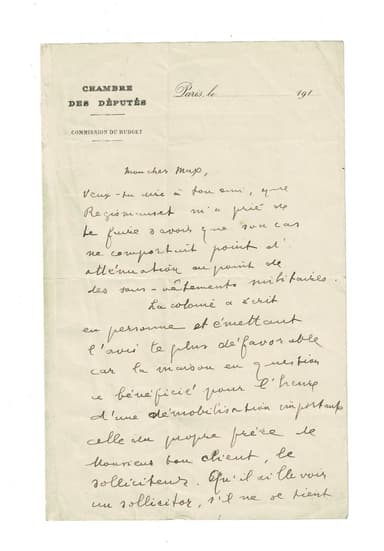 CHAMBRE
DES DÉPUTÉS
COMMISSION DU BUDGET
Paris, le 191
Mon cher Max,
Veux-tu dire à ton ami, que
m'a prié de
te faire savoir que son cas
ne comportait point d'
atténuation au point de
des sous-vêtements militaires.
La colonie a écrit
en personne et émettant
l'avis le plus défavorable
car la maison en question
a bénéficié pour l'heure
d'une démobilisation importante
celle du propre frère de
Monsieur ton client, le
solliciteur. Qu'il aille voir
un sollicitor, s'il ne se tient